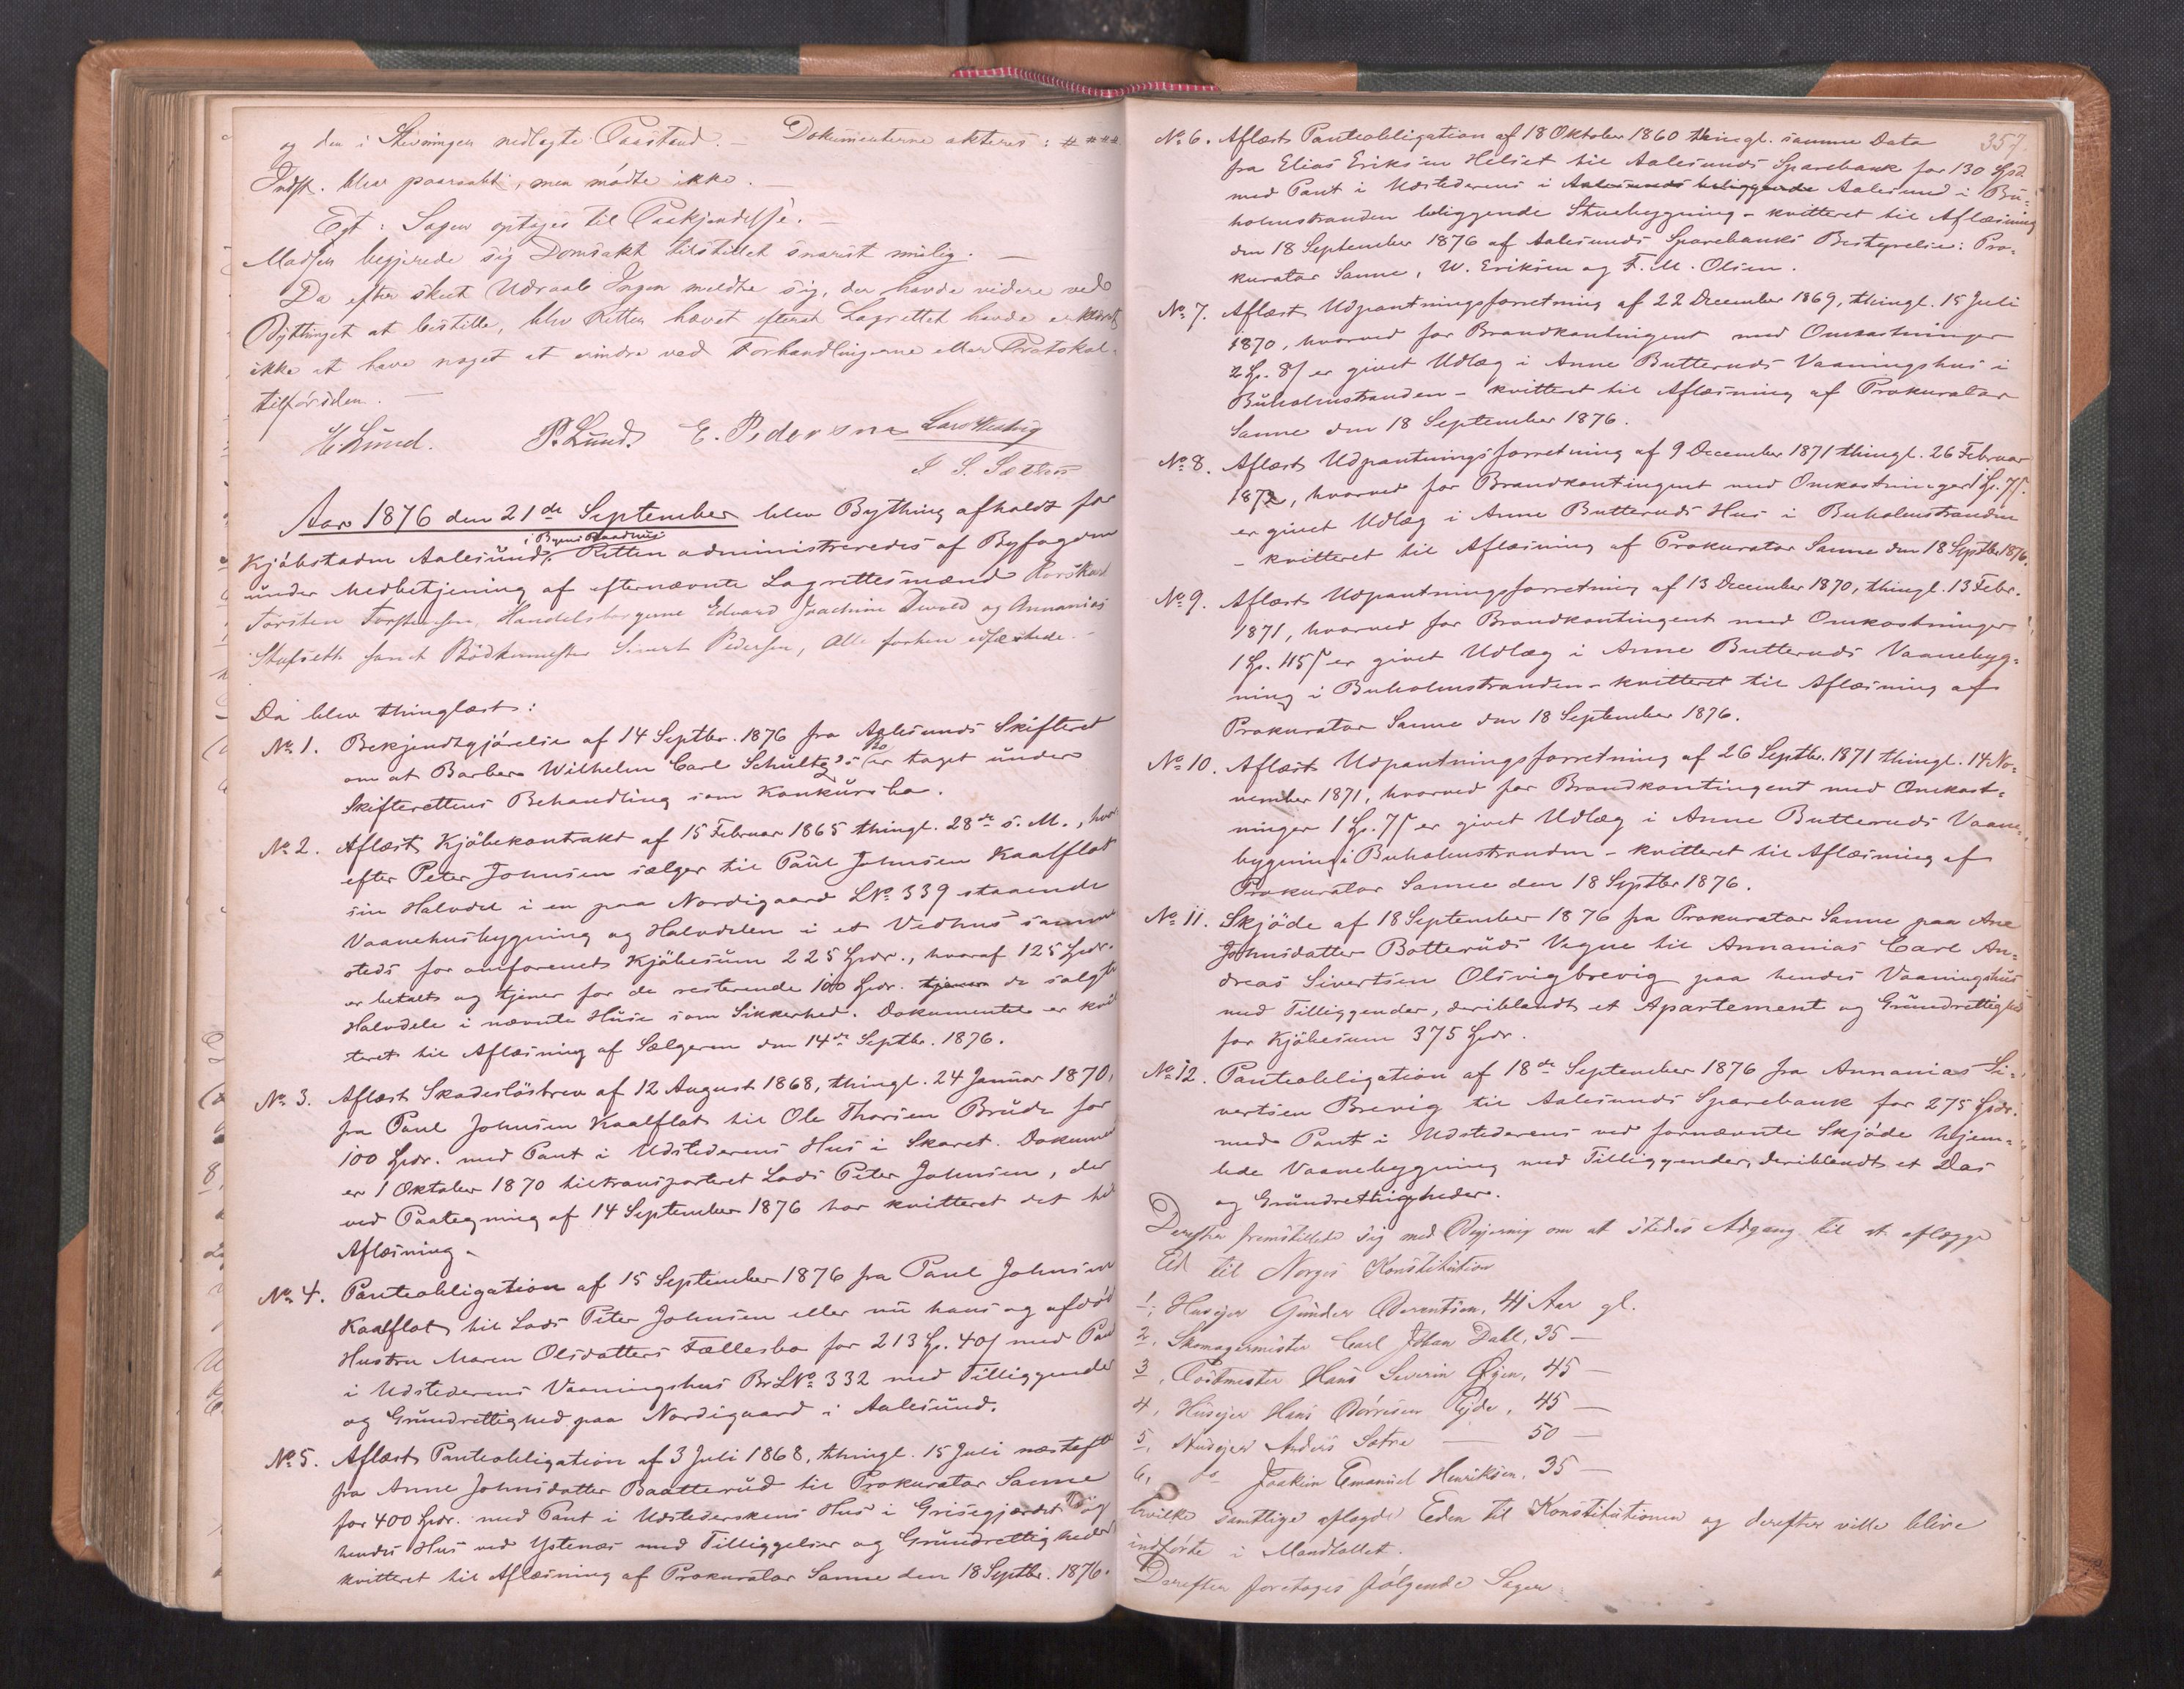 og den i Stevningen nedlagte Paastand. – Dokumenterne akteres: # # # #
Indst. blev paaraabt, men mødte ikke. –
Egt: Sagen optages til Paakjendelse. –
Madsen begjerede sig Domsakt tilstillet snarest mulig. –
Da efter skeet Udraab Ingen meldte sig, der havde videre ved
Bythinget at bestille, blev Retten hævet efterat Lagrettet havde erklæret
ikke at have noget at erindre ved Forhandlingerne eller Protokol-
tilførslen. –
H Lund. P. Lund. E. Pedersen Lars Westvig
Aar 1876 den 21de September blev Bything afholdt for
Kjøbstaden Aalesund i Byens Raadhus. Retten administreredes af Byfogden
under Medbetjening af efternævnte Lagrettesmænd
Torsten Torstensen, Handelsborgerne Edvard Joachim Devold og Annanias
samt Bødkermester Sivert Pedersen, Alle forhen edfæstede. –
Da blev thinglæst:
No 1. Bekjendtgjørelse af 14 Septbr. 1876 fra Aalesunds Skifteret
om at Barber Wilhelm Carl Schultz's Bo er taget under
Skifterettens Behandling som Konkursbo.
No 2. Aflæst Kjøbekontrakt af 15 Februar 1865 thingl. 28de s. M., hvor-
efter Peter Johnsen sælger til Paul Johnsen Kaalflot
sin Halvdel i en paa Nordigaard LNo 339 staaende
Vaanehusbygning og Halvdelen i et Vedhus samme-
steds for omforenet Kjøbesum 225 Spdr., hvoraf 125 Spdr.
er betalt og tjener for de resterende 100 Spdr. tjener de solgte
Halvdele i nævnte Huse som Sikkerhed. Dokumentet er kvit-
teret til Aflæsning af Sælgeren den 14de Septbr. 1876.
No 3. Aflæst Skadesløsbrev af 12 August 1868, thingl. 24 Januar 1870,
fra Paul Johnsen Kaalflot til Ole Thorsen Brude for
100 Spdr. med Pant i Udstederens Hus i Skaret. Dokumentet
er 1 Oktober 1870 tiltransporteret Lods Peter Johnsen, der
ved Paategning af 14 September 1876 har kvitteret det til
Aflæsning.
No 4. Panteobligation af 15 September 1876 fra Paul Johnsen
Kaalflot til Lods Peter Johnsen eller nu hans og afdød
Hustru Maren Olsdatters Fællesbo for 213 Sp. 40 s med Pant
i Udstederens Vaaningshus Br.LNo 332 med Tilliggender
og Grundrettighed paa Nordigaard i Aalesund.
No 5. Aflæst Panteobligation af 3 Juli 1868, thingl. 15 Juli næstefter
fra Anne Johnsdatter Baatterud til Prokurator Sanne
for 400 Spdr. med Pant i Udstederskens Hus i Grisegjærdet og
hendes Hus ved Ystenæs med Tilliggelser og Grundrettigheder
kvitteret til Aflæsning af Prokurator Sanne den 18 Septbr. 1876.
357.
No 6. Aflæst Panteobligation af 18 Oktober 1860 thingl. samme Dato
fra Elias Eriksen Helset til Aalesunds Sparebank for 130 Spd
med Pant i Udstederens i Aalesunds beliggende Aalesund i Bu-
holmstranden beliggende Stuebygning – kvitteret til Aflæsning
den 18 September 1876 af Aalesunds Sparebanks Bestyrelse: Pro-
kurator Sanne, W. Eriksen og F. M. Olsen.
No 7. Aflæst Udpantningsforretning af 22 December 1869, thingl. 15 Juli
1870, hvorved for Brandkontingent med Omkostninger
2 Sp. 8 s er givet Udlæg i Anne Butteruds Vaaningshus i
Buholmstranden – kvitteret til Aflæsning af Prokurator
Sanne den 18 September 1876.
No 8. Aflæst Udpantningsforretning af 9 December 1871 thingl. 26 Februar
1872, hvorved for Brandkontingent med Omkostninger 1 Sp. 7 s.
er givet Udlæg i Anne Butteruds Hus i Buholmstranden
– kvitteret til Aflæsning af Prokurator Sanne den 18 Septbr 1876.
No 9. Aflæst Udpantningsforretning af 13 December 1870, thingl. 13 Febr.
1871, hvorved for Brandkontingent med Omkostninger
1 Sp. 115 s er givet Udlæg i Anne Butteruds Vaanebyg-
ning i Buholmstranden – kvitteret til Aflæsning af
Prokurator Sanne den 18 September 1876.
No 10. Aflæst Udpantningsforretning af 26 Septbr. 1871 thingl. 14 No-
vember 1871, hvorved for Brandkontingent med Omkost-
ninger 1 Sp. 7 s er givet Udlæg i Anne Butteruds Vaane-
bygning i Buholmstranden – kvitteret til Aflæsning af
Prokurator Sanne den 18 Septbr 1876.
No 11. Skjøde af 18 September 1876 fra Prokurator Sanne paa Ane
Johnsdatter Botteruds Vegne til Annanias Carl An-
dreas Sivertsen Olsvigbrevig paa hendes Vaaningshus
med Tilliggender, deriblandt et Apartement og Grundrettighed
for Kjøbesum 375 Spdr.
No 12. Panteobligation af 18de September 1876 fra Annanias Si-
vertsen Brevig til Aalesunds Sparebank for 275 Spdr.
med Pant i Udstederens ved fornævnte Skjøde hjem-
lede Vaanebygning med Tilliggender, deriblandt et Das
og Grundrettigheder.
Derefter fremstillede sig med Begjering om at stedes Adgang til at aflægge
Ed til Norges Konstitution
1, Huseier Gunder Berentsen, 41 Aar gl.
2, Skomagermester Carl Johan Dahl, 35 –
3, Postmester Hans Severin Øyen, 45 –
4, Huseier Hans Børresen Eide, 45 –
5, Huseier Anders Sætre – 50 –
6, do Joakim Emanuel Henriksen, 35 –
hvilke samtlige aflagde Eden til Konstitutionen og derefter ville blive
indførte i Mandtallet.
Derefter foretages følgende Sager: